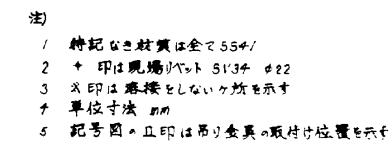 注)
1 特記なき材質は全てSS41
2 + 印は現場リベット SV34 φ22
3 ※印は溶接をしないヶ所を示す
4 単位寸法 mm
5 記号図の⊥印は吊り金具の取付け位置を示す